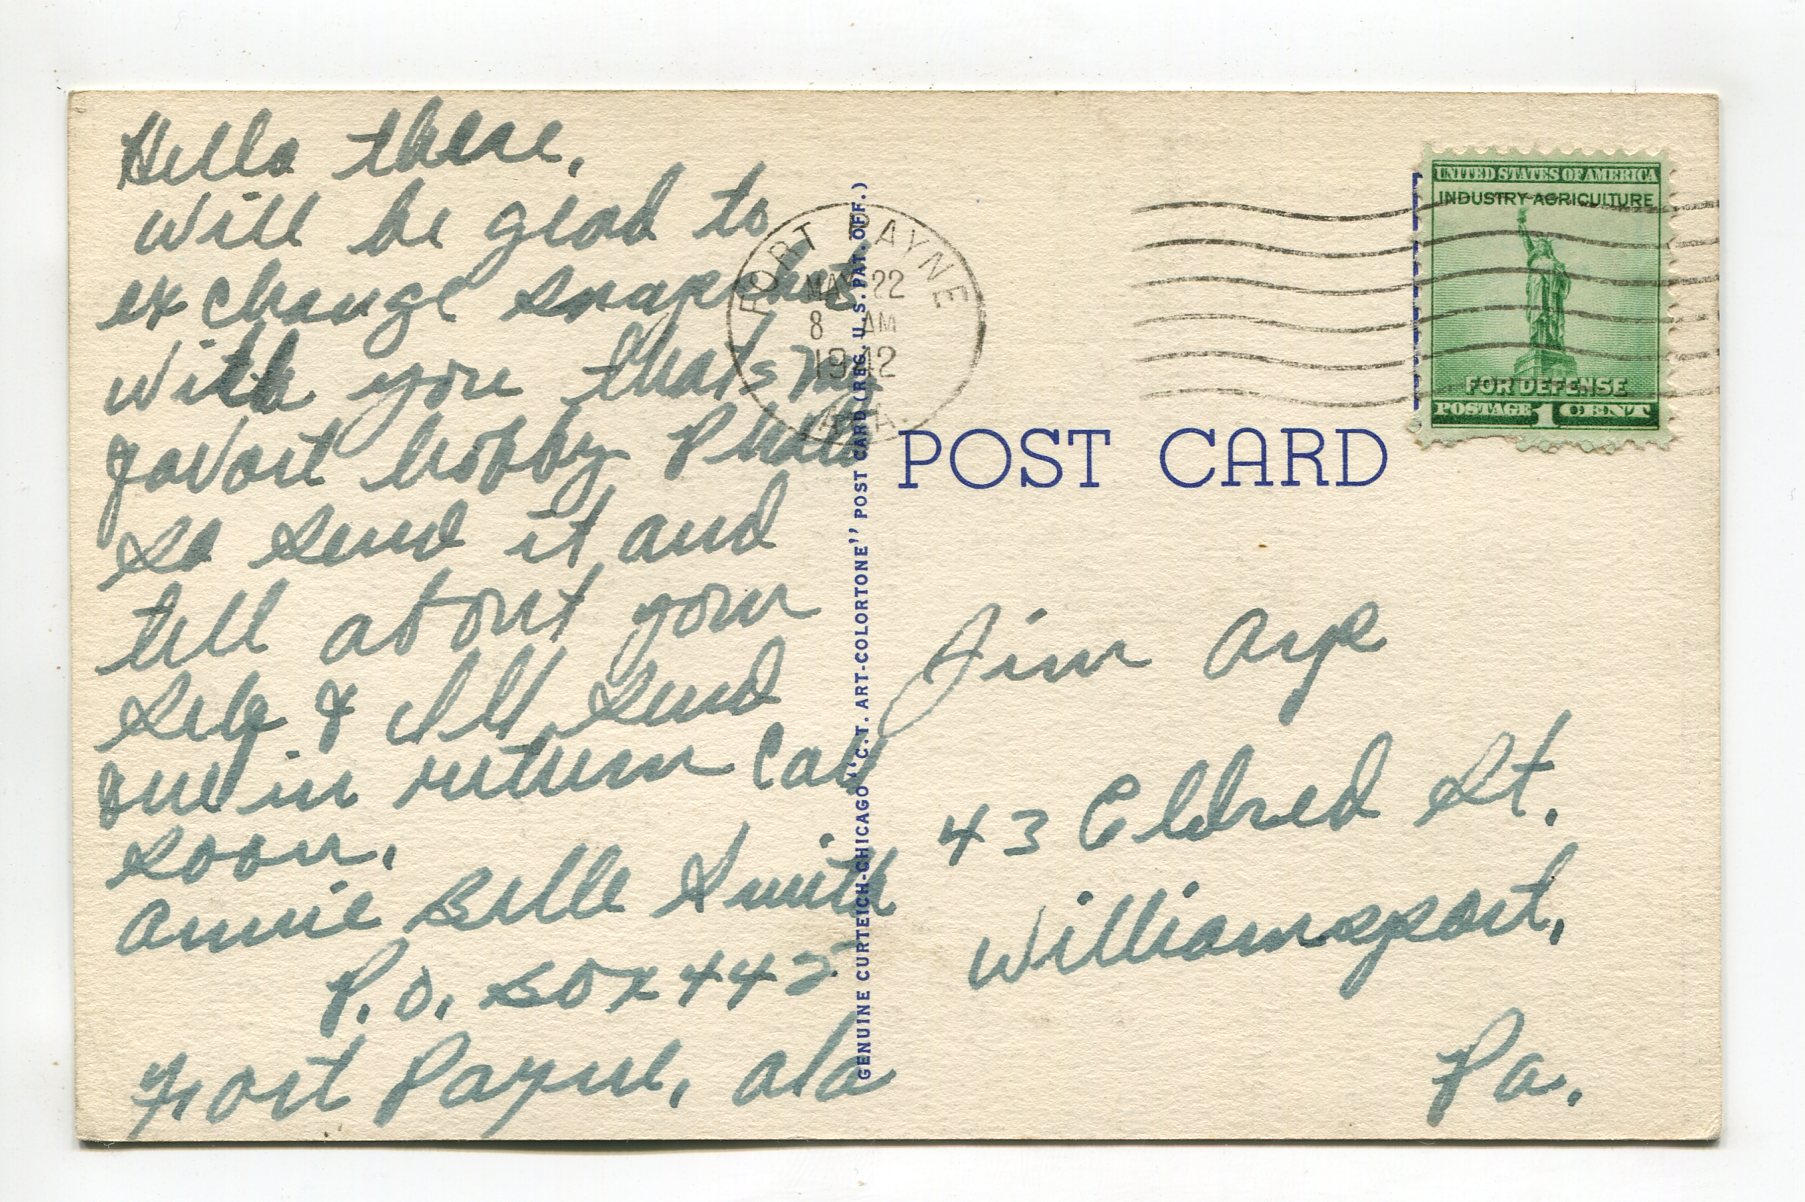 Hello there,
will be glad to
exchange snapshots
with you thats my
favort hobby Photo
so send it and
tell about your
self & I'll send
one in return Cal
soon.
Annie Belle Smith
P.O. Box 442
Fort Payne, Ala
GENUINE CURTEICH-CHICAGO "C.T. ART-COLORTONE" POST CARD (REG. U.S. PAT. OFF.)
FORT PAYNE
MAY 22
8 AM
1942
ALA
UNITED STATES OF AMERICA
INDUSTRY AGRICULTURE
FOR DEFENSE
POSTAGE 1 CENT
POST CARD
Jim Aye
43 Eldred St.
Williamsport,
Pa.